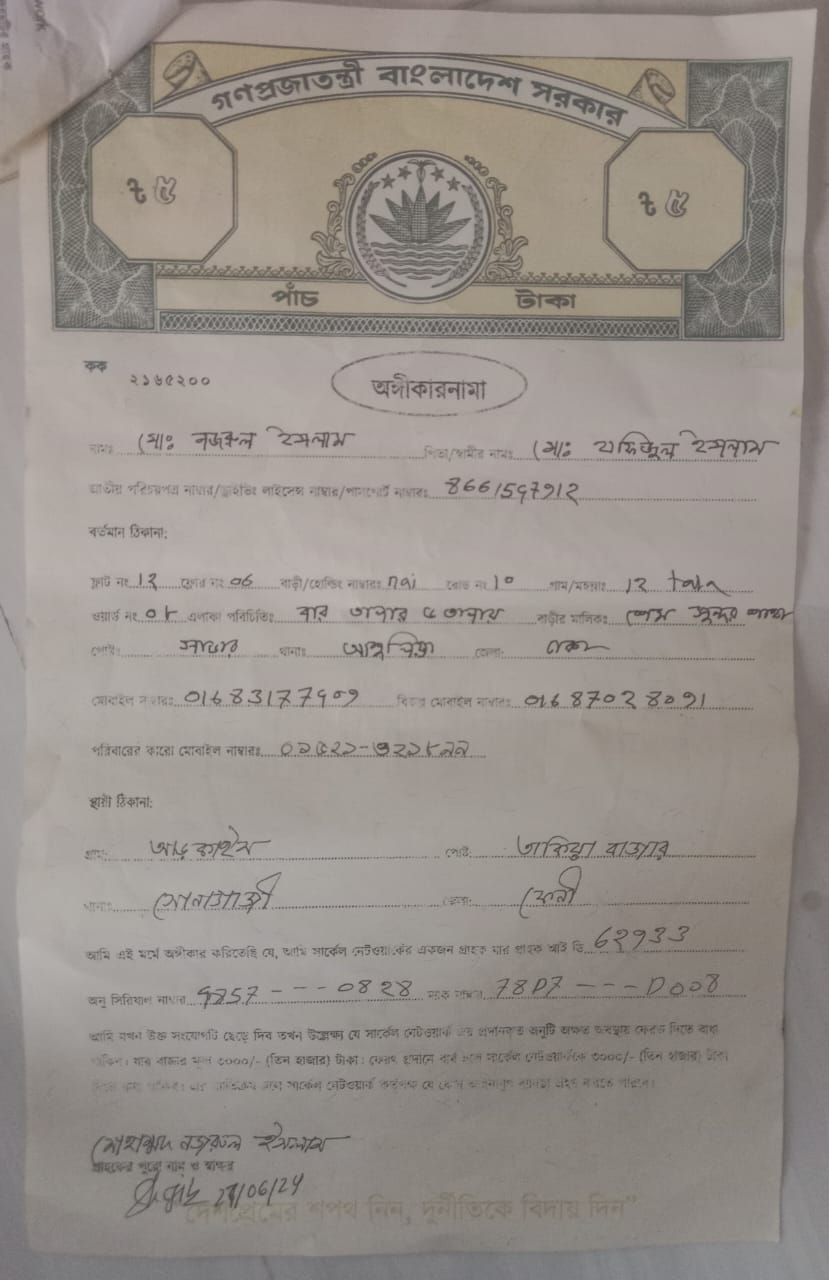 গণপ্রজাতন্ত্রী বাংলাদেশ সরকার
৳ ৫ ৳ ৫
পাঁচ টাকা
কক ২১৬৫২০০
অঙ্গীকারনামা
নামঃ মোঃ নজরুল ইসলাম পিতা/স্বামীর নামঃ মোঃ রফিকুল ইসলাম
জাতীয় পরিচয়পত্র নাম্বার/ড্রাইভিং লাইসেন্স নাম্বার/পাসপোর্ট নাম্বারঃ 8661597912
বর্তমান ঠিকানা:
ফ্লাট নং 12 ফ্লোর নং 06 বাড়ী/হোল্ডিং নাম্বারঃ nai রোড নং 10 গ্রাম/মহল্লাঃ 12 tala
ওয়ার্ড নং 08 এলাকা পরিচিতিঃ বার তালার বাড়ীর মালিকঃ
পোষ্ট: সাভার থানাঃ আশুলিয়া জেলা: ঢাকা
মোবাইল নাম্বারঃ 01683177909 বিকল্প মোবাইল নাম্বারঃ 01687028091
পরিবারের কারো মোবাইল নাম্বারঃ ০১৫২১-৩২১৮৯৯
স্থায়ী ঠিকানা:
গ্রাম: পোষ্ট: তাকিয়া বাজার
থানাঃ সোনাগাজী জেলা: ফেনী
আমি এই মর্মে অঙ্গীকার করিতেছি যে, আমি সার্কেল নেটওয়ার্কের একজন গ্রাহক যার গ্রাহক আই ডি 62933
অনু সিরিয়াল নাম্বার 9257 --- 0828 ম্যাক নাম্বার 78D7 --- D008
আমি যখন উক্ত সংযোগটি ছেড়ে দিব তখন উল্লেক্ষ্য যে সার্কেল নেটওয়ার্ক এর প্রদানকৃত অনুটি অক্ষত অবস্থায় ফেরত দিতে বাধ্য
থাকিব। যার বাজার মূল্য ৩০০০/- (তিন হাজার) টাকা। ফেরৎ প্রদানে ব্যর্থ হলে সার্কেল নেটওয়ার্ককে ৩০০০/- (তিন হাজার) টাকা
দিতে বাধ্য থাকিব। এর ব্যতিক্রম হলে সার্কেল নেটওয়ার্ক কর্তৃপক্ষ যে কোন আইনানুগ ব্যবস্থা গ্রহণ করতে পারিবে।
মোহাম্মদ নজরুল ইসলাম
গ্রাহকের পুরো নাম ও স্বাক্ষর
/06/24
দেশপ্রেমের শপথ নিন, দুর্নীতিকে বিদায় দিন"